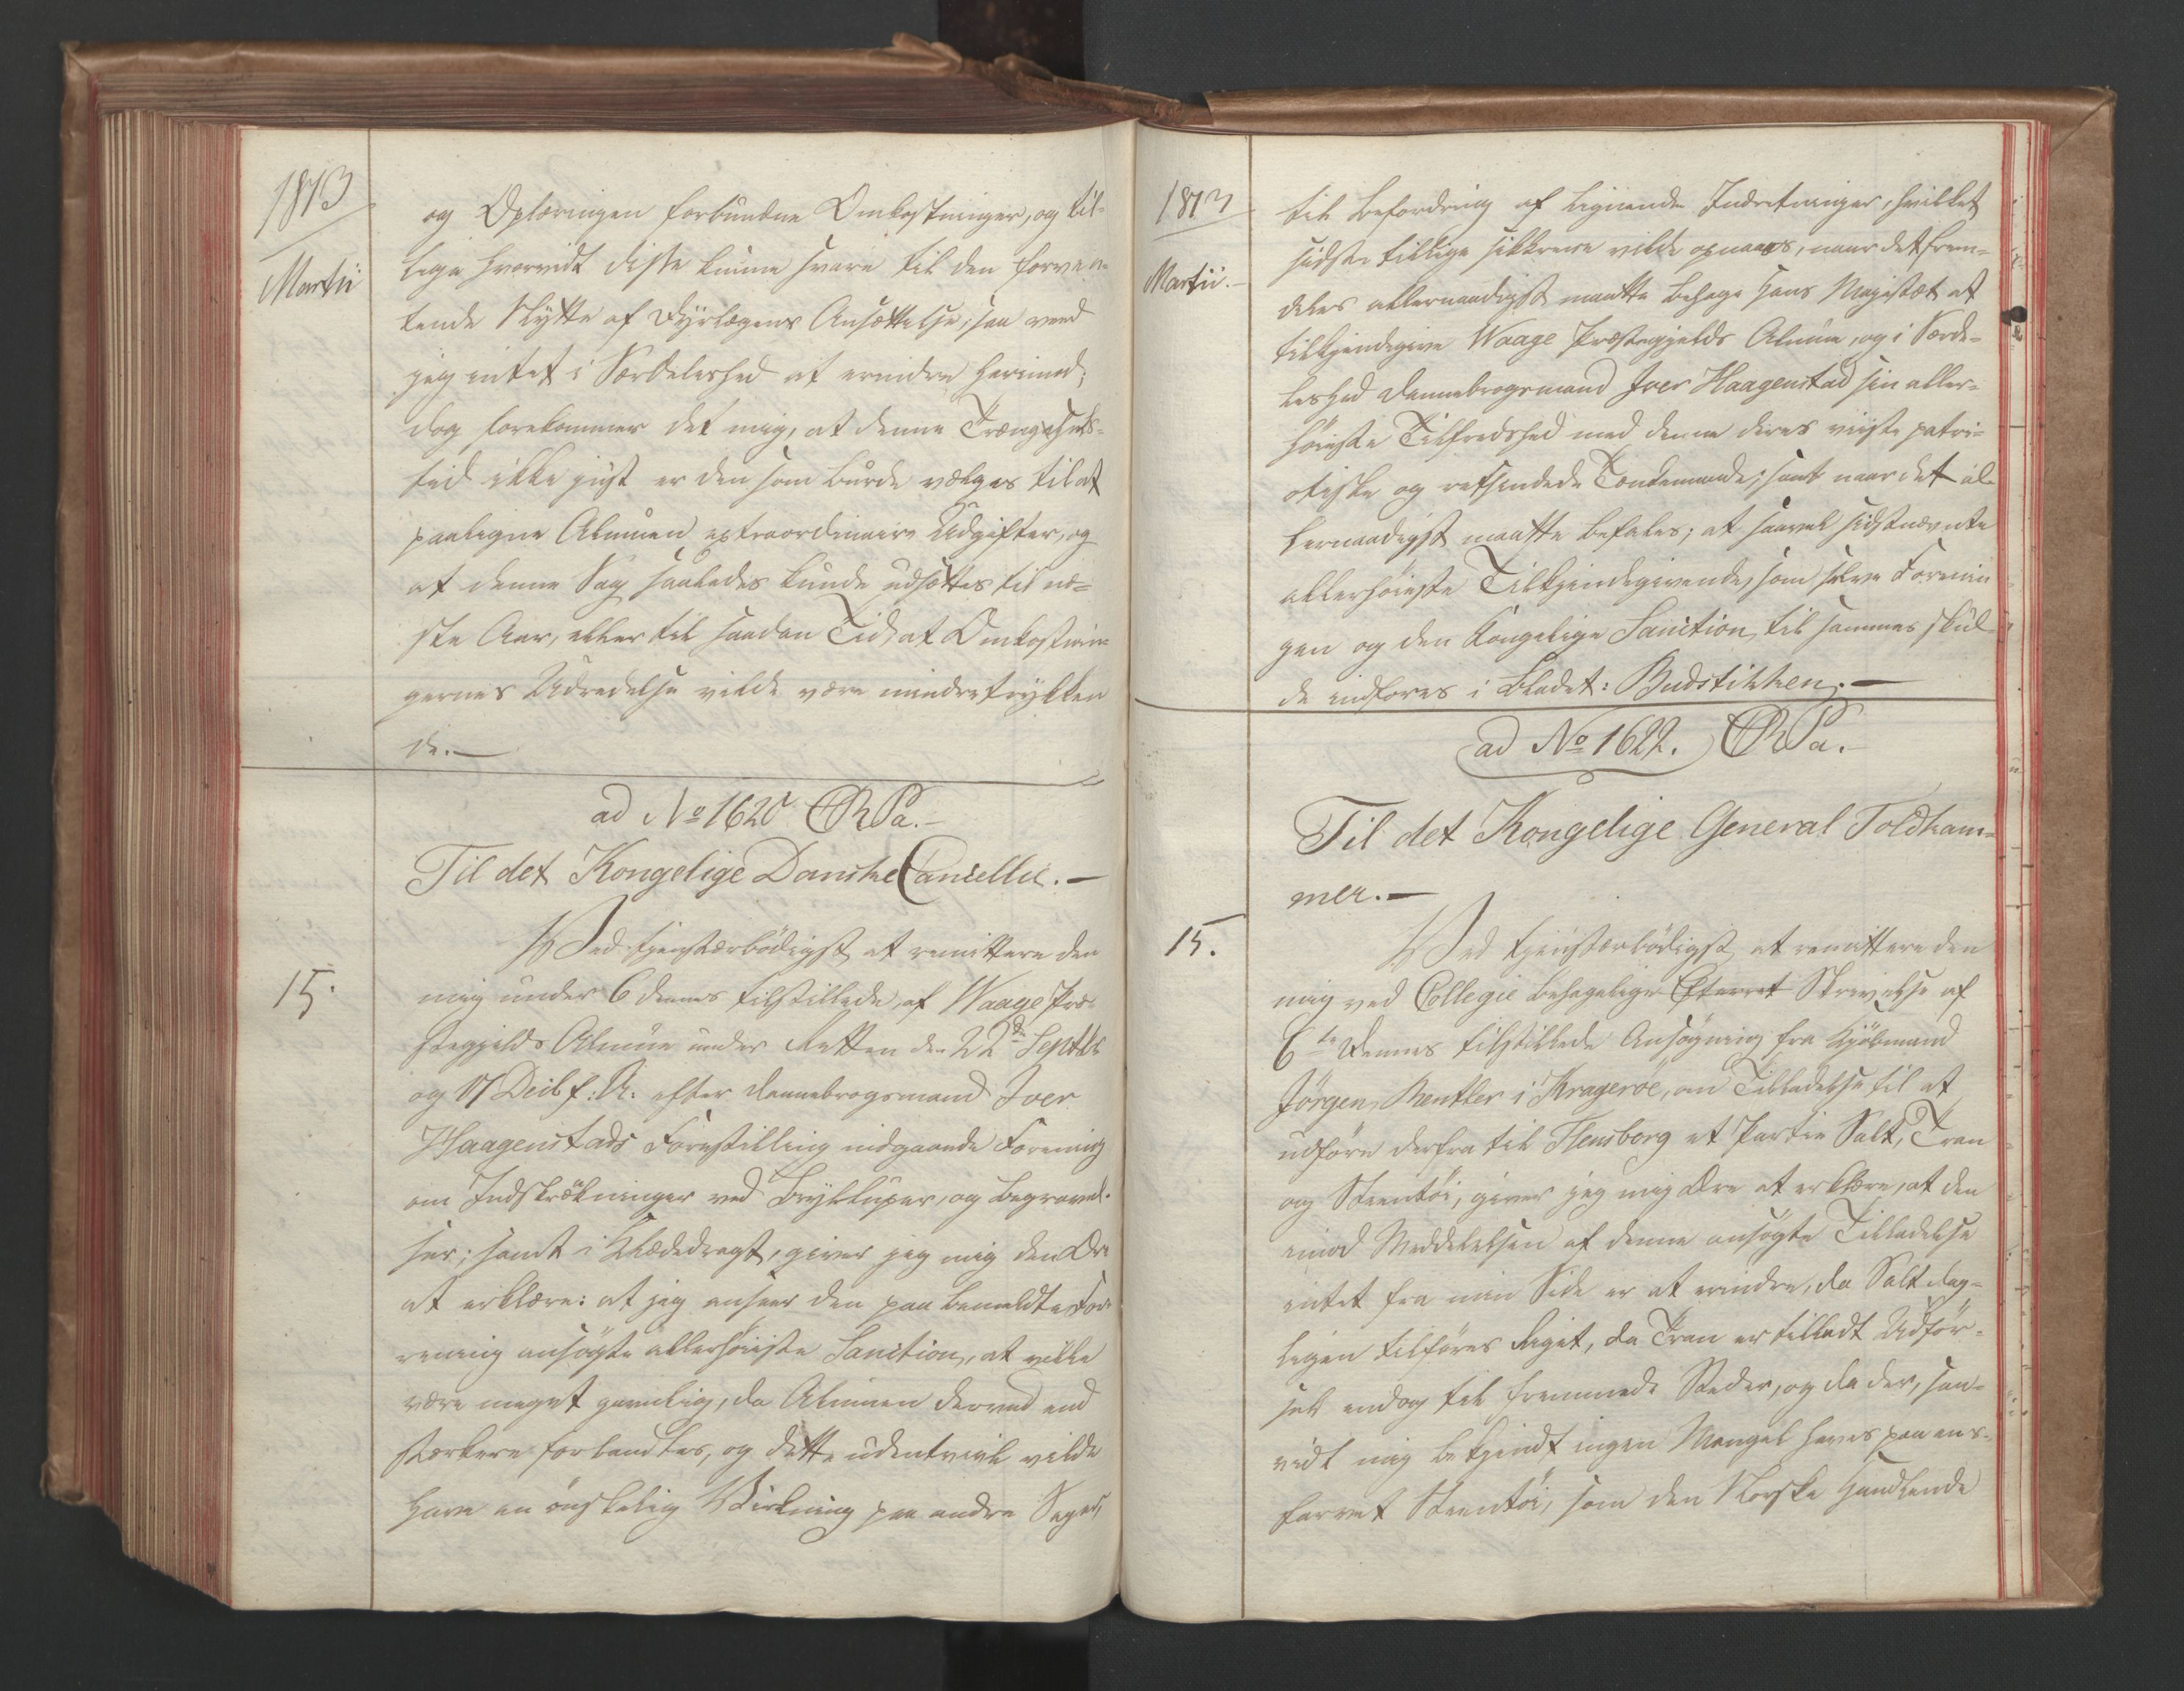 1813
Martii
og Oplæringen forbundne Omkostninger, og til-
lige hvorvidt disse kunne svare til den forven-
tende Nytte af Dyrlægens Ansættelse; saa veed
jeg intet i Særdeleshed at erindre herimod;
dog forekommer det mig, at denne Trængsels-
tid ikke just er den som burde vælges til at
paaligne Almuen extraordinaire Udgifter, og
at denne Sag saaledes kunde udsættes til næ-
ste Aar, eller til saadan Tid, at Omkostnin-
gernes Udredelse vilde være mindre trykken
de.-
ad No 1620
Til det Kongelige Danske Cancellie.-
15.
Ved tjenstærbödigst at remittere den
mig under 6 dennes tilstillede, af Waage Præ-
stegjelds Almue under Retten den 22de Septbr
og 17 Decbr f: A: efter Dannebrogsmand Iver
Haagenstads Forestilling indgaaede Forening
om Indskrækninger ved Bryllupper, og Begravel-
ser; samt i Klædedragt, giver jeg mig den Ære
at erklære: at jeg anseer den paa bemeldte Fo-
rening ansögte allerhöieste Sanction, at ville
være meget gavnlig, da Almuen derved end
stærkere forbandtes, og dette udentvivl vilde
have en önskelig Virkning paa andre Sogne,
1813
Martii.-
til Befordring af lignende Indretninger, hvilket
sidste tillige sikkrere vilde opnaaes, naar det frem-
deles allernaadigst maatte behage Hans Majestæt at
tilkjendegive Waage Præstegjelds Almue, og i Særde-
leshed Dannebrogsmand Iver Haagenstad sin aller-
höieste Tilfredshed med denne deres viiste patri-
otiske og retsindede Tænkemaade; samt naar det al-
lernaadigst maatte befales; at saavel sidstnævnte
allerhöieste Tilkjendegivende, som selve Forenin
gen og den Kongelige Sanction til sammes skul-
de indføres i Bladet: Budstikken.-
ad No 1622.
Til det Kongelige General Toldkam-
mer.-
15.
Ved tjenstærbödigst at remittere den
mig ved Collegie behagelige Skrivelse af
6te Dennes tilstillede Ansögning fra Kjöbmand
Jörgen Bentler i Krageröe, om Tilladelse til at
udföre derfra til Flensborg et Partie Salt, Tran
og Steentöi, giver jeg mig Ære at erklære, at den
imod Meddelelsen af denne ansögte Tilladelse
intet fra min Side er at erindre, da Salt dag-
ligen tilföres Riget, da Tran er tilladt Udför-
sel endog til fremmede Steder, og da der, saa-
vidt mig bekjendt ingen Mangel haves paa ens-
farvet Steentöi, som den Norske Handlende